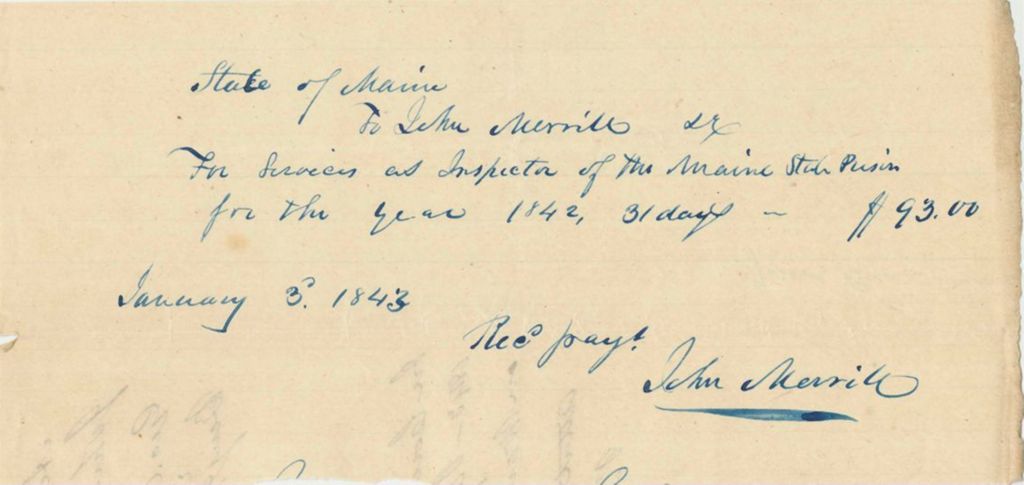 State of Maine
To John Merrill Dr
For Services as Inspector of the Maine State Prison
for the year 1842, 31 days — $93.00
January 3d. 1843
Recd payt.
John Merrill